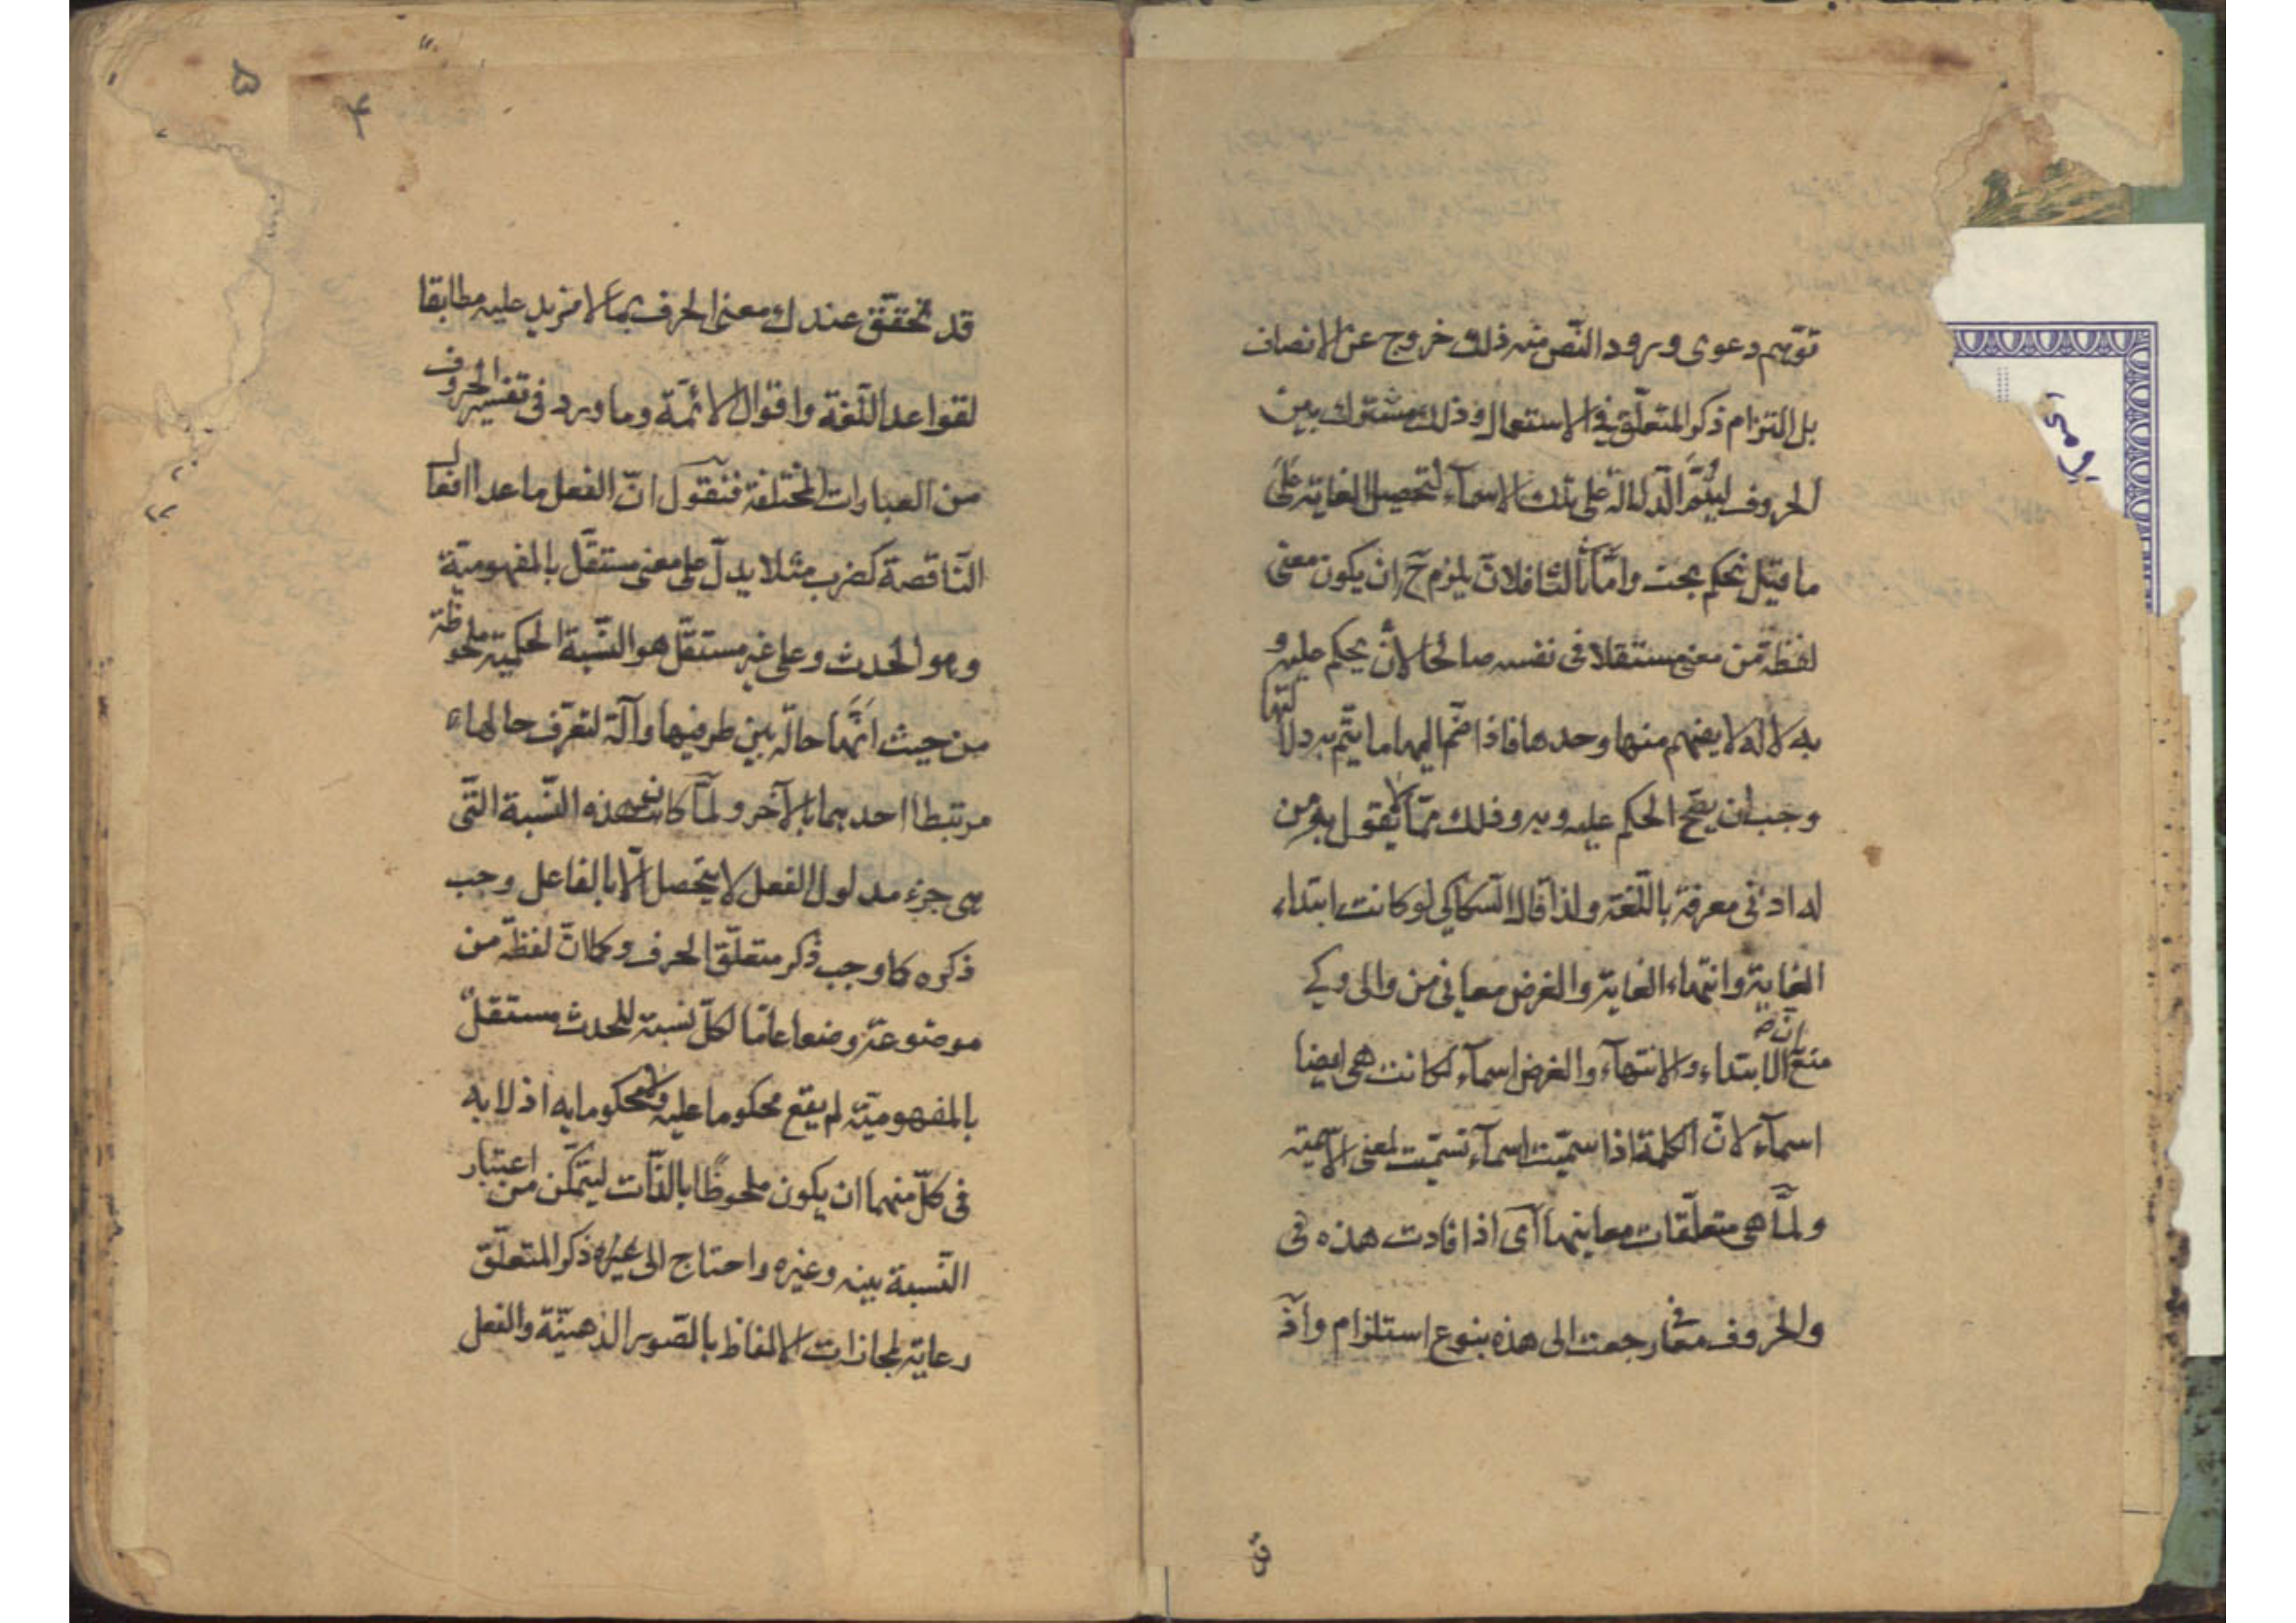 توهم دعوى ورود النّص منه ذلك خروج عن الانصاف
بل التزام ذكر المتعلّق في الاستعمال وذلك مشترك بين
الحروف ليتمّ الدلالة على تلك الاسمآء لتحصيل الغاية على
ما قيل تحكم بحت وامّا ثالثا فلانّ يلزم ح ان يكون معنى
لفظة من معنى مستقلا في نفسه صالحا لان يحكم عليه و
به لا انه لا يفهم منها وحدها فاذا ضمّ اليها ما يتمّ به دلالتها
وجب ان يصّح الحكم عليه وبه وذلك ممّا لا يقول به من
له ادنى معرفة باللّغة ولذا قال السّكاكي لو كانت ابتداء
الغاية وانتهاء الغاية والغرض معاني من والى وكي
مع انّ الابتداء والانتهآء والغرض اسمآء لكانت هي ايضا
اسمآء لانّ الكلمة اذا سمّيت اسمآء سمّيت لمعنى الاسمية
ولمّا هي متعلّقات معاينها اى اذا فادت هذه في
والحروف معاني رجعت الى هذه بنوع استلزام واذ
قد
۵
۴
قد تحققّ عندك معنى الحرف بما لا مزيد عليه مطابقا
لقواعد اللّغة واقوال الائمّة وما ورد في تفسير الحروف
من العبارات المختلفة فنقول انّ الفعل ما عدا افعال
النّاقصة كضرب مثلا يدلّ على معنى مستقلّ بالمفهوميّة
وهو الحدث وعلى غير مستقلّ هو النّسبة الحكمية ملحوظة
من حيث انّها حالة بين طرفيها وآلة لتعرّف حالهاء
مرتبطا احدهما بالآخر ولمّا كانت هذه النّسبة التّى
هي جزء مدلول الفعل لا يتحصل الّا بالفاعل وجب
ذكره كما وجب ذكر متعلّق الحرف وكما انّ لفظة من
موضوعة وضعا عامّا لكلّ نسبة للحدث مستقلّ
بالمفهوميّة لم يقع محكوما عليه ولا محكوما به اذ لا بد
في كلّ منهما ان يكون ملحوظا بالذّات ليتمكّن من اعتبار
النّسبة بينه وغيره واحتاج الى غيره ذكر المتعلّق
رعاية لمحاذات الالفاظ بالصّور الذهنيّة والفعل